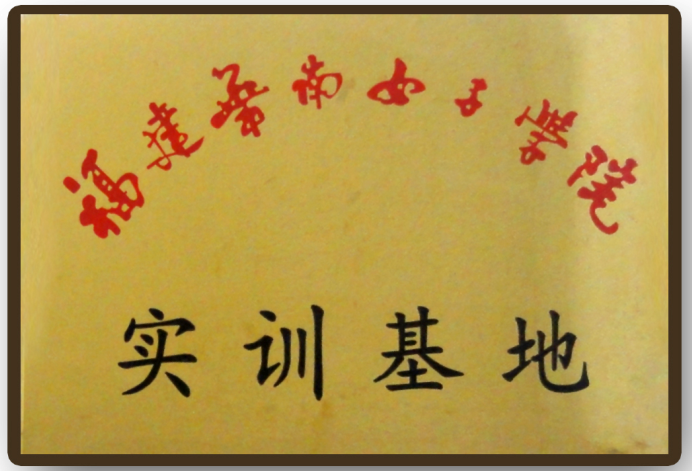 福建华南女子学院
实训基地